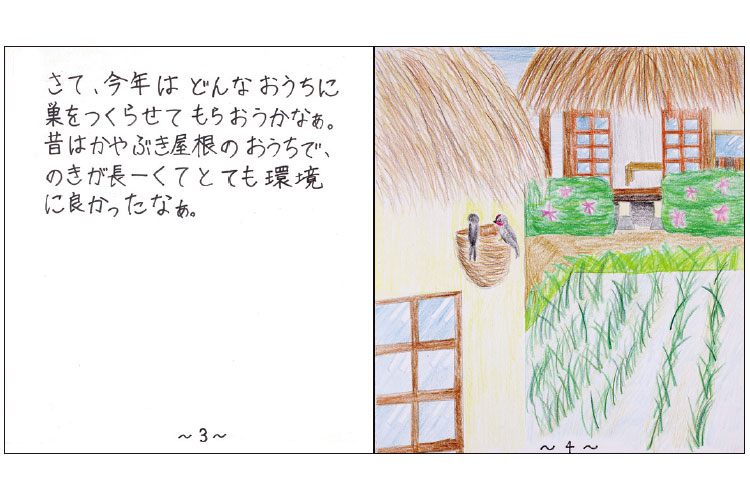 さて、今年は どんな おうちに
巣をつくらせて もらおうかなぁ。
昔は かやぶき屋根の おうちで、
のきが長ーくて とても 環境
に良かったなぁ。
~3~
~4~